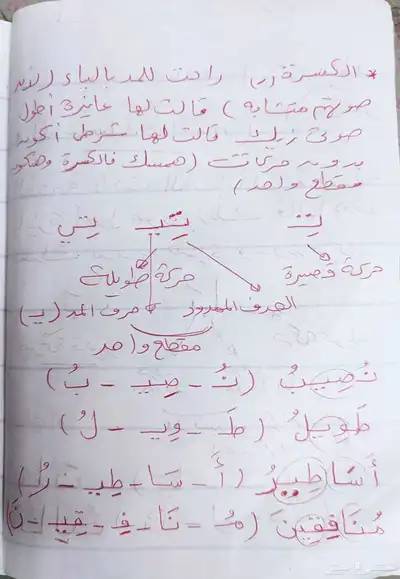 * الكسرة (ـِ) راحت للمد بالياء (لأن
صوتهم متشابه) قالت لها عايزة أطول
صوتي زيك قالت لها بشرط أكون
بدون حركات (همسك فالكسرة وهنكون
مقطع واحد)
تِ تِيـ تِي
حركة قصيرة حركة طويلة
الحرف الممدود حرف المد (يـ)
مقطع واحد
نُصِيبُ (نُ - صِيـ - بُ)
طَوِيلُ (طَ - وِيـ - لُ)
أَسَاطِيرُ (أَ - سَا - طِيـ - رُ)
مُنَافِقِينَ (مُ - نَا - فِـ - قِيـ - نَ)